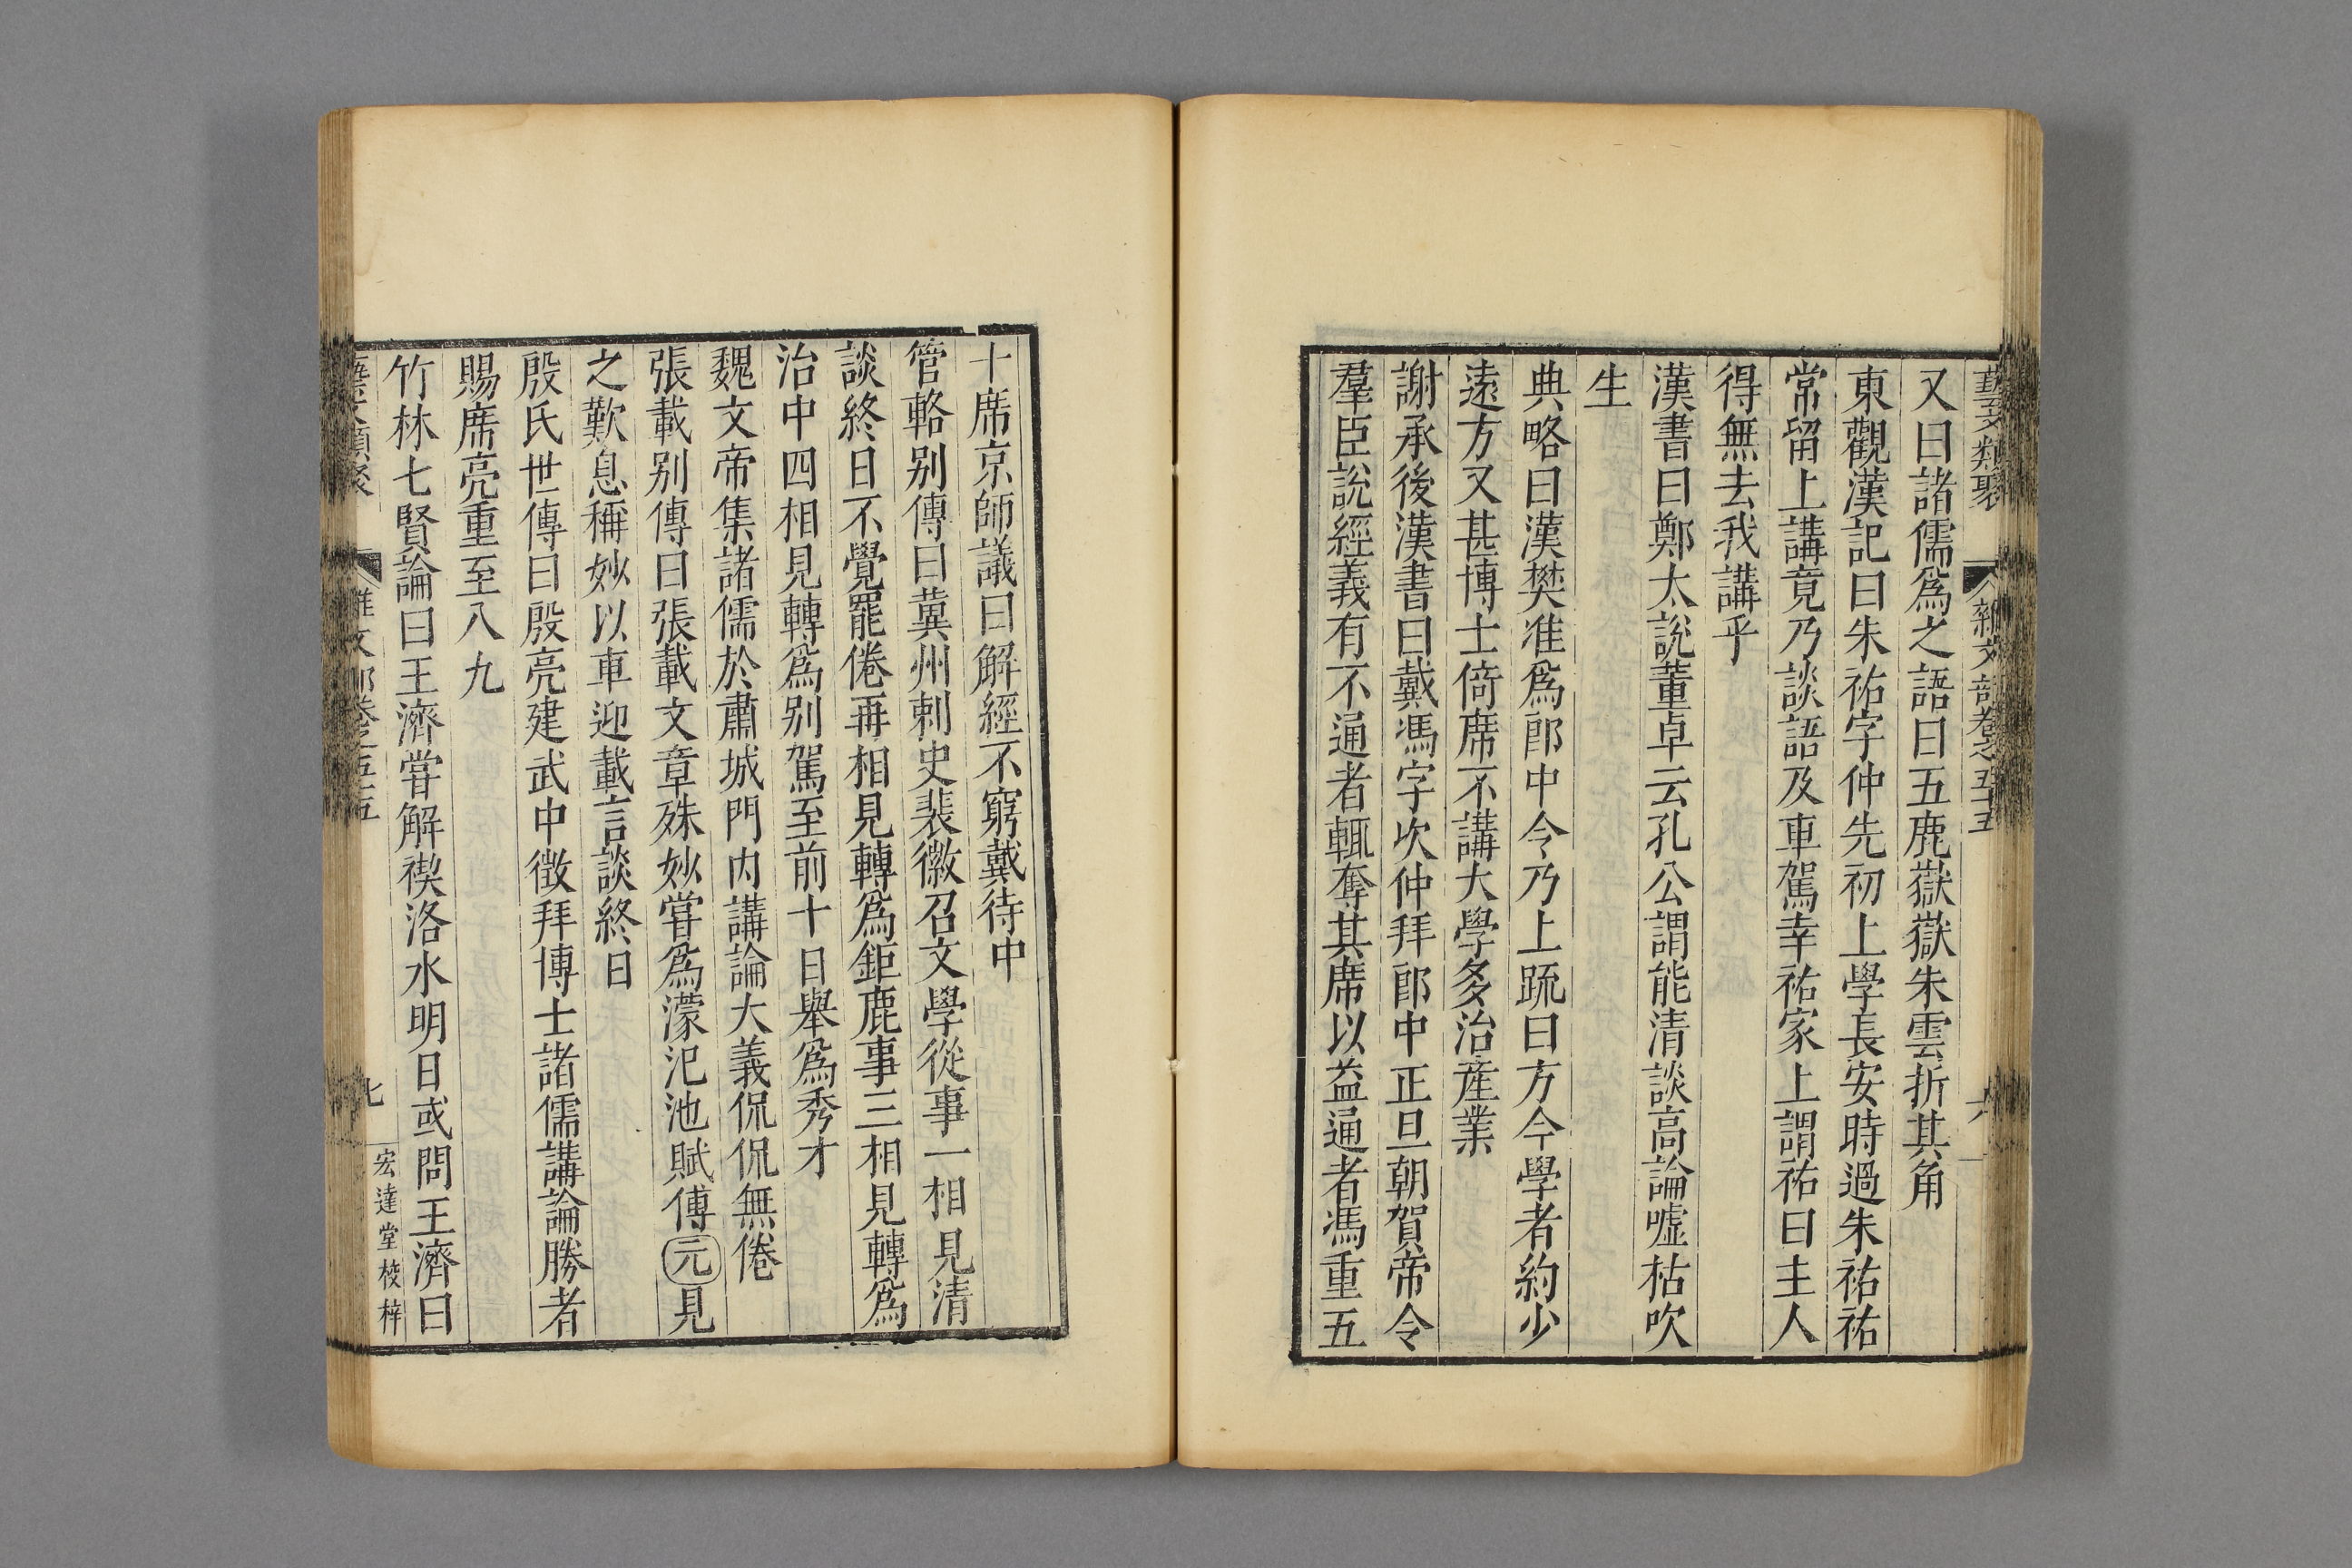 藝文類聚 雜文部卷之五十五 六
又曰諸儒爲之語曰五鹿嶽嶽朱雲折其角
東觀漢記曰朱祐字仲先初上學長安時過朱祐祐
常留上講竟乃談語及車駕幸祐家上謂祐曰主人
得無去我講乎
漢書曰鄭太說董卓云孔公謂能清談高論噓枯吹
生
典略曰漢樊准爲郎中令乃上疏曰方今學者約少
遠方又甚博士倚席不講大學多治産業
謝承後漢書曰戴馮字次仲拜郎中正旦朝賀帝令
羣臣說經義有不通者輒奪其席以益通者馮重五
十席京師議曰解經不窮戴待中
管輅别傳曰冀州刺史裴徽召文學從事一相見清
談終日不覺罷倦再相見轉爲鉅鹿事三相見轉爲
治中四相見轉爲别駕至前十日舉爲秀才
魏文帝集諸儒於肅城門内講論大義侃侃無倦
張載别傳曰張載文章殊妙甞爲濛汜池賦傅元見
之歎息稱妙以車迎載言談終日
殷氏世傳曰殷亮建武中徵拜博士諸儒講論勝者
賜席亮重至八九
竹林七賢論曰王濟甞解禊洛水明日或問王濟曰
藝文類聚 雜文部卷之五十五 七 宏達堂校梓